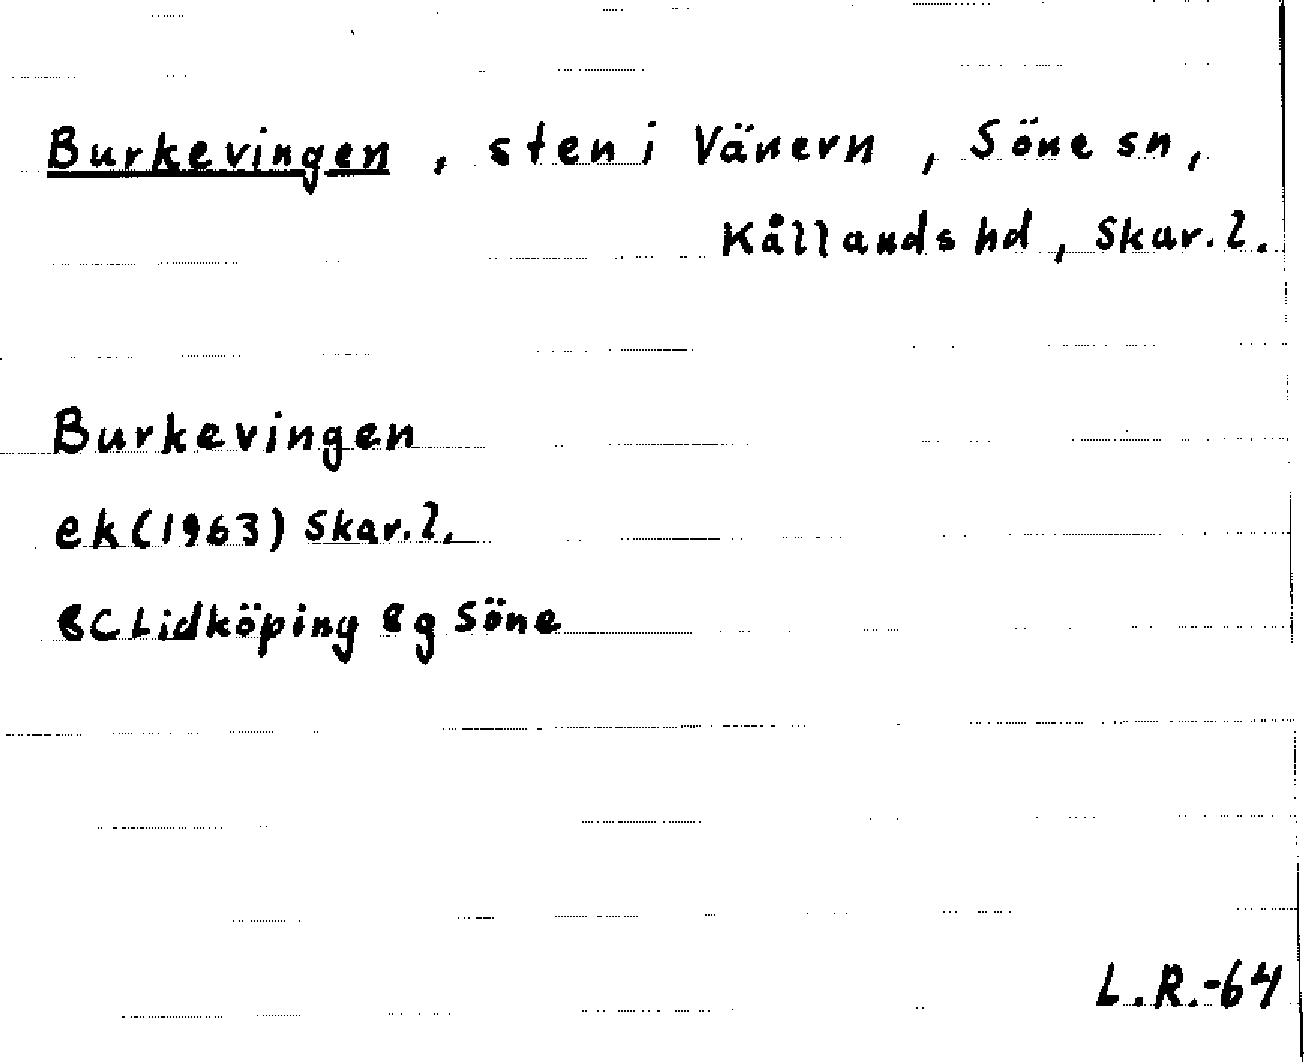 Burkevingen, sten i Vänern, Söne sn,
Kållands hd, Skar. l.
Burkevingen
ek (1963) Skar. l.
8C Lidköping 8g Söne
L.R.-64